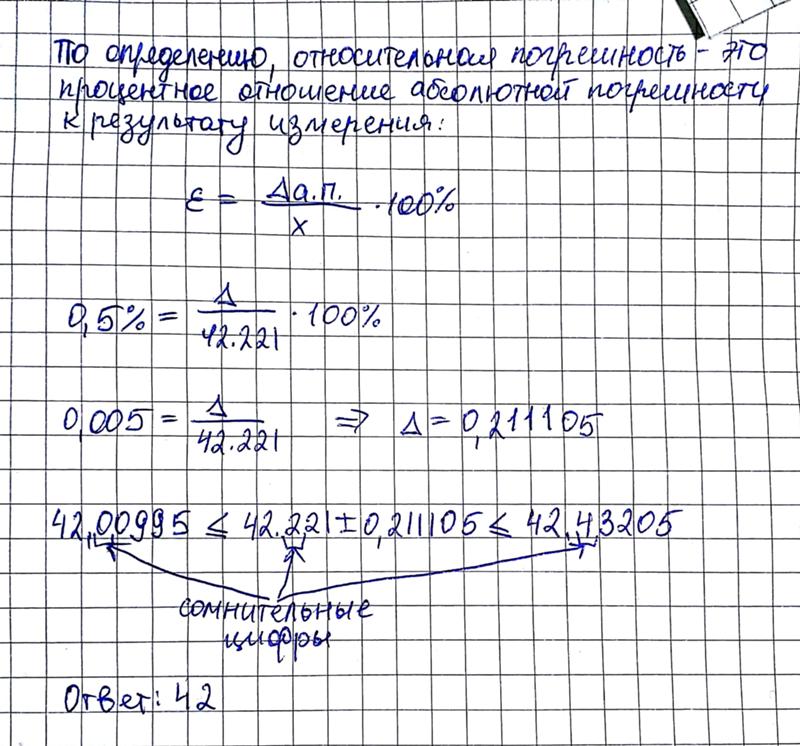 По определению, относительная погрешность - это
процентное отношение абсолютной погрешности
к результату измерения:
ε = Δа.п. / x · 100%
0,5% = Δ / 42.221 · 100%
0,005 = Δ / 42.221 ⇒ Δ = 0,211105
42,00995 ≤ 42.221 ± 0,211105 ≤ 42.43205
сомнительные
цифры
Ответ: 42